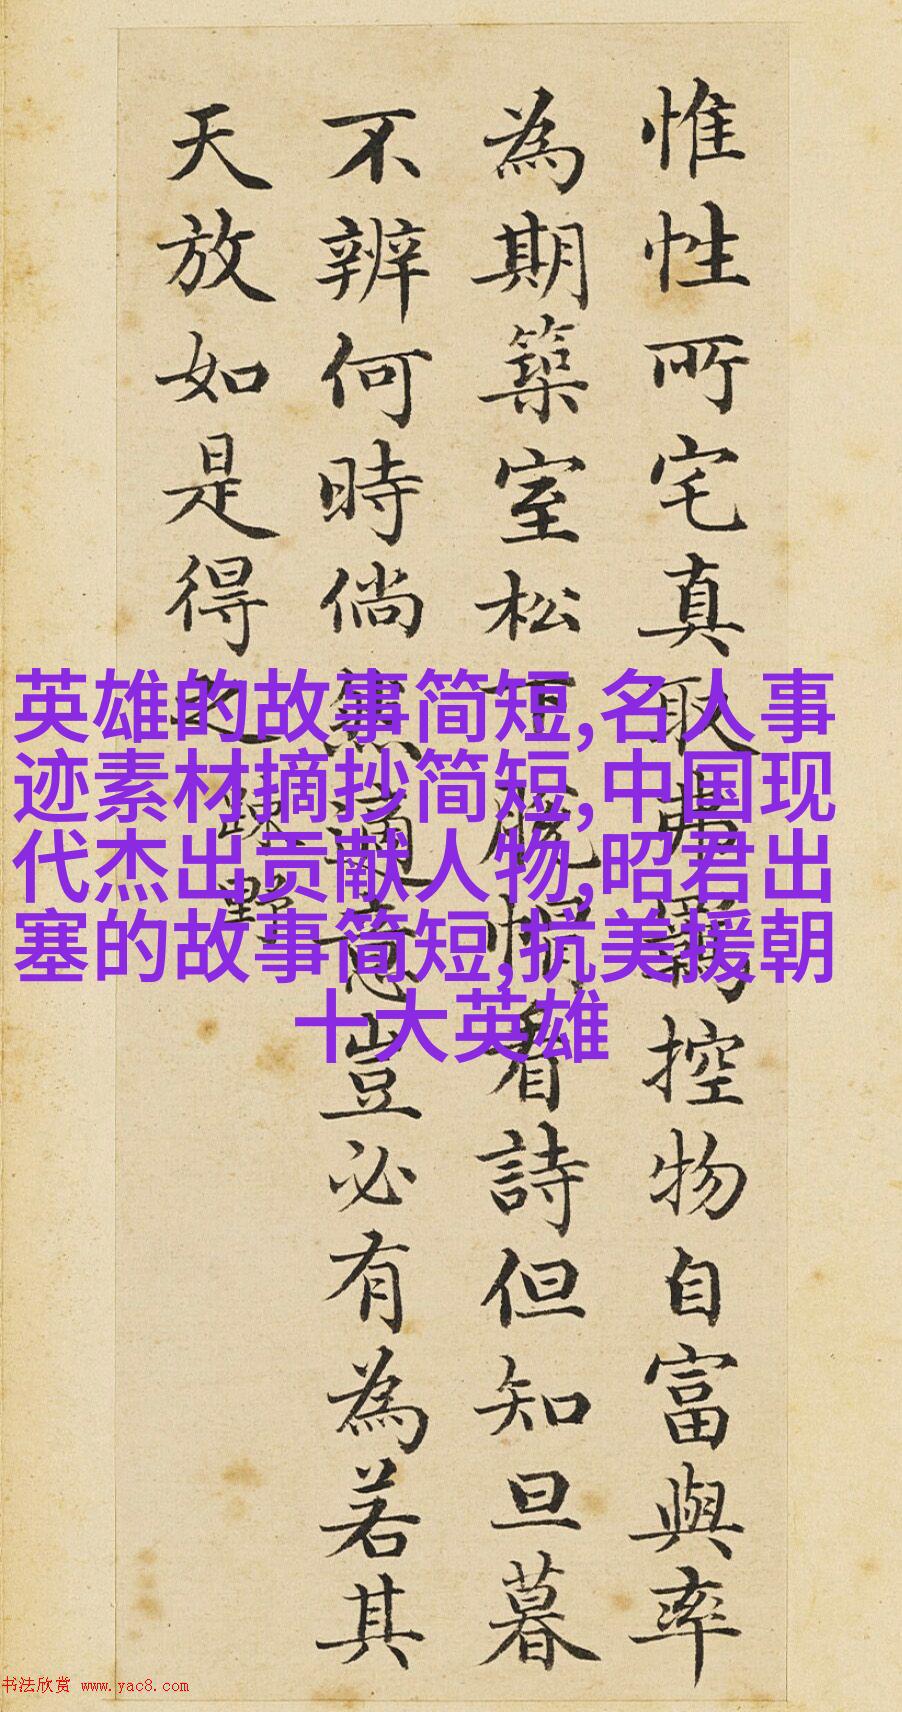 惟性所宅真取弗羈控物自富與率
為期築室松下脫帽看詩但知旦暮
不辨何時倘然適意豈必有為若其
天放如是得之
疎野
英雄的故事简短,名人事
迹素材摘抄简短,中国现
代杰出贡献人物,昭君出
塞的故事简短,抗美援朝
十大英雄
书法欣赏 www.yac8.com